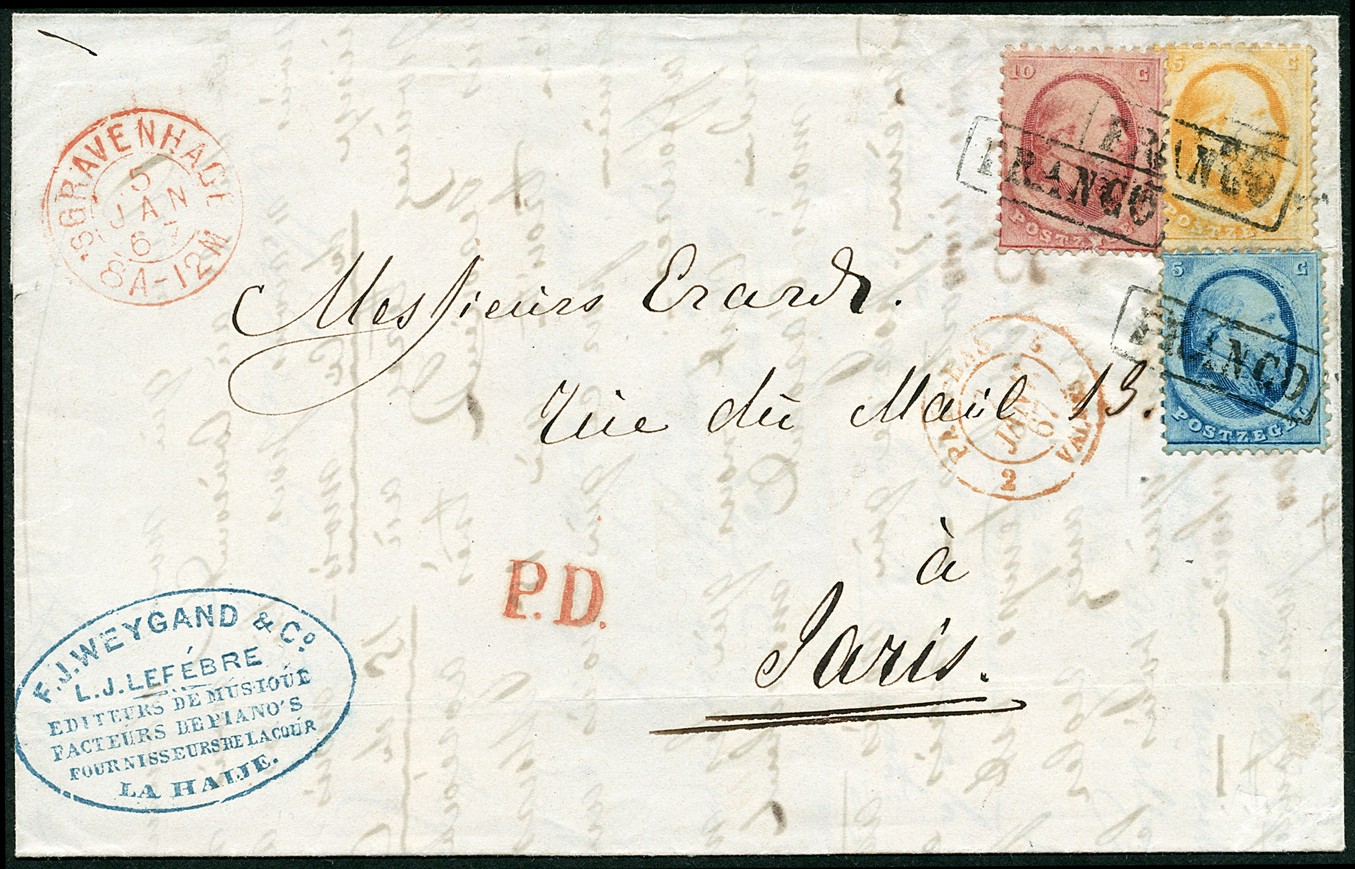 'SGRAVENHAGE
5
JAN
67
8A-12M
10 C
POSTZEGEL
15 C
POSTZEGEL
FRANCO
FRANCO
5 C
POSTZEGEL
FRANCO
Messieurs Erard.
rue du Mail 13.
à
Paris.
PAYS-BAS
5
JAN
67
2
P.D.
F.J. WEYGAND & Co.
L.J. LEFÉBRE
EDITEURS DE MUSIQUE
FACTEURS DE PIANO'S
FOURNISSEURS DE LA COUR
LA HAIJE.